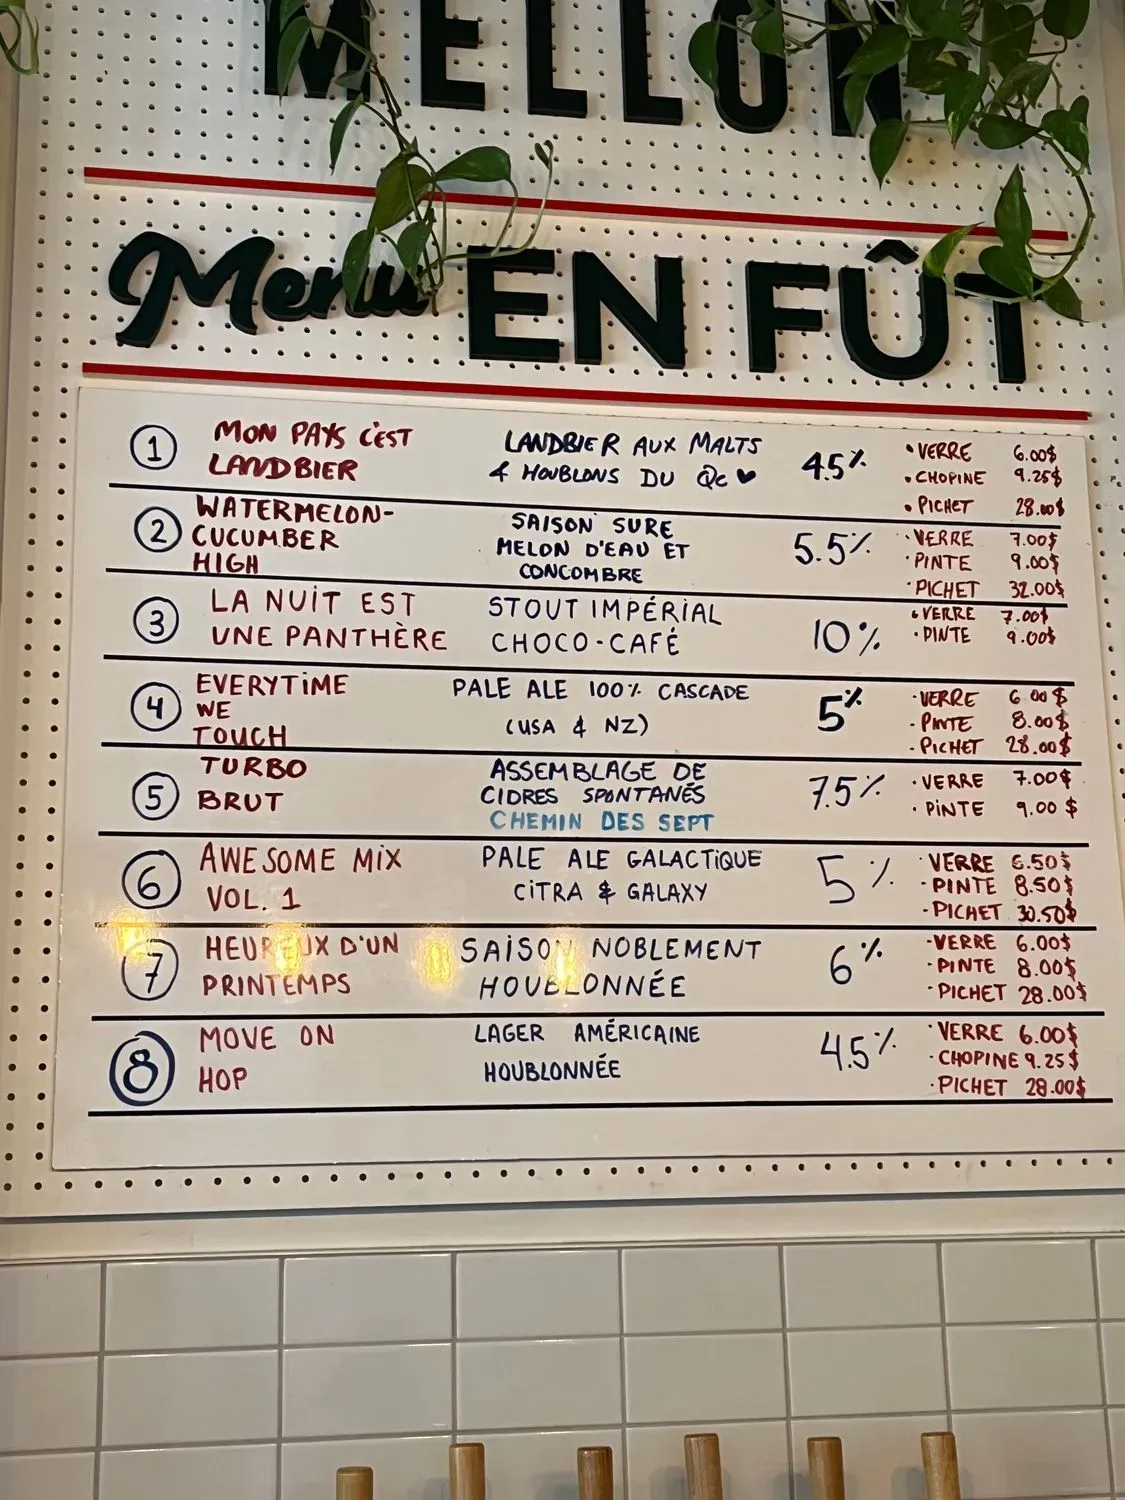 MELLON
Menu EN FÛT
1 MON PAYS C'EST LANDBIER
LANDBIER AUX MALTS
& HOUBLONS DU Qc ♥
4.5%
• VERRE 6.00$
• CHOPINE 9.25$
• PICHET 28.00$
2 WATERMELON-
CUCUMBER
HIGH
SAISON SURE
MELON D'EAU ET
CONCOMBRE
5.5%
· VERRE 7.00$
· PINTE 9.00$
· PICHET 32.00$
3 LA NUIT EST
UNE PANTHÈRE
STOUT IMPÉRIAL
CHOCO-CAFÉ
10%
• VERRE 7.00$
· PINTE 9.00$
4 EVERYTIME
WE
TOUCH
PALE ALE 100% CASCADE
(USA & NZ)
5%
· VERRE 6.00$
· PINTE 8.00$
· PICHET 28.00$
5 TURBO
BRUT
ASSEMBLAGE DE
CIDRES SPONTANÉS
CHEMIN DES SEPT
7.5%
· VERRE 7.00$
· PINTE 9.00$
6 AWESOME MIX
VOL. 1
PALE ALE GALACTIQUE
CITRA & GALAXY
5%
· VERRE 6.50$
· PINTE 8.50$
· PICHET 30.50$
7 HEUREUX D'UN
PRINTEMPS
SAISON NOBLEMENT
HOUBLONNÉE
6%
· VERRE 6.00$
· PINTE 8.00$
· PICHET 28.00$
8 MOVE ON
HOP
LAGER AMÉRICAINE
HOUBLONNÉE
4.5%
· VERRE 6.00$
· CHOPINE 9.25$
· PICHET 28.00$